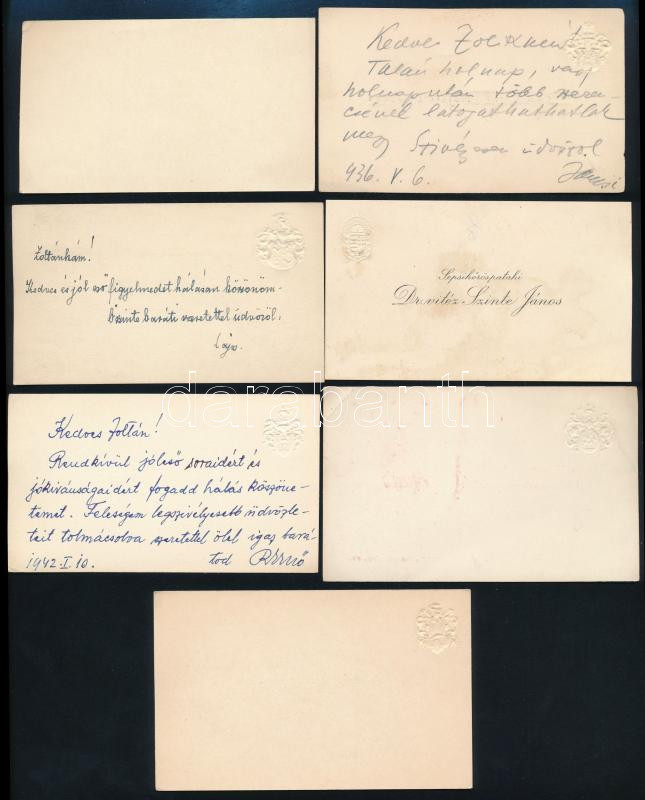 Kedves Zolikám!
Talán holnap, vagy
holnapután több szeren-
csével látogathatlak
meg Szívélyesen üdvözöl
936. V. 6.
Zoltánkám!
Kedves és jól eső figyelmedet hálásan köszönöm.
Őszinte baráti szeretettel üdvözöl,
Lajos.
Sepsikőröspataki
Dr. vitéz Szinte János
darabanth
Kedves Zoltán!
Rendkívül jóleső soraidért és
jókivánságaidért fogadd hálás köszöne-
temet. Feleségem legszivélyesebb üdvözle-
teit tolmácsolva szeretettel ölel igaz bará-
1942. I. 10. tod Ernő